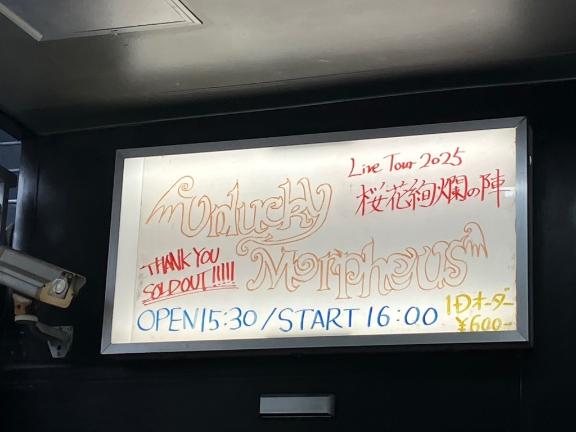 Live Tour 2025
桜花絢爛の陣
Unlucky
Morpheus
THANK YOU
SOLDOUT!!!!!
OPEN 15:30 / START 16:00
1Dオーダー
¥600-